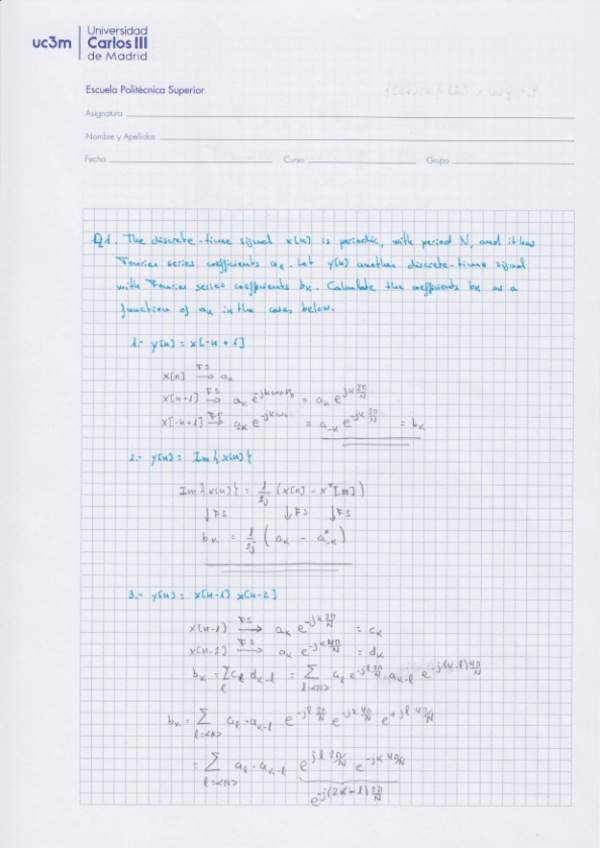 uc3m
Universidad
Carlos III
de Madrid
Escuela Politécnica Superior
Asignatura
Nombre y Apellidos
Fecha Curso Grupo
Q1. The discrete-time signal x[n] is periodic, with period N, and it has
Fourier series coefficients aₖ. Let y[n] another discrete-time signal
with Fourier series coefficients bₖ. Calculate the coefficients bₖ as a
function of aₖ in the cases below.
1.- y[n] = x[-n+1]
x[n] FS → aₖ
x[n+1] FS → aₖ e^{-jkω₀n₀} = aₖ e^{jk 2π/N}
x[-n+1] FS → = a₋ₖ e^{-jk 2π/N} = bₖ
2.- y[n] = Im{x[n]}
Im{x[n]} = 1/2j (x[n] - x*[n])
↓FS ↓FS ↓FS
bₖ = 1/2j (aₖ - a*₋ₖ)
3.- y[n] = x[n-1] x[n-2]
x[n-1] FS → aₖ e^{-jk 2π/N} = cₖ
x[n-2] FS → aₖ e^{-jk 4π/N} = dₖ
bₖ = Σ_l c_l d_{k-l} = Σ_{l=<N>} a_l e^{-jl 2π/N} a_{k-l} e^{-j(k-l) 4π/N}
bₖ = Σ_{l=<N>} a_l · a_{k-l} e^{-jl 2π/N} e^{-jk 4π/N} e^{+jl 4π/N}
= Σ_{l=<N>} a_l · a_{k-l} e^{jl 2π/N} e^{-jk 4π/N}
e^{-j(2k-l) 2π/N}